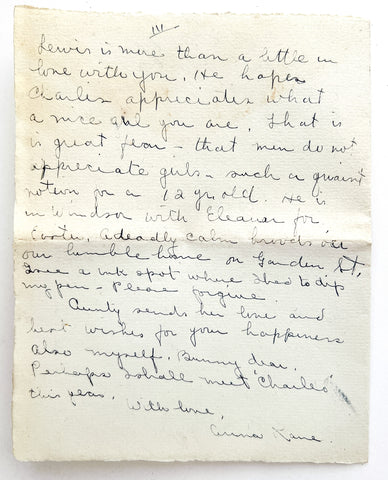 III
Lewis is more than a little in
love with you. He hopes
Charles appreciates what
a nice girl you are. That is
is great fear - that men do not
appreciate girls - such a quaint
notion for a 12 yr. old. He is
in Windsor with Eleanor for
Easter. A deadly calm broods over
our humble home on Garden St.
I see a ink spot where I had to dip
my pen - Please forgive.
Aunty sends her love and
best wishes for your happiness
also myself, Bunny dear.
Perhaps I shall meet "Charles"
this year.
With love,
Anna Kane.